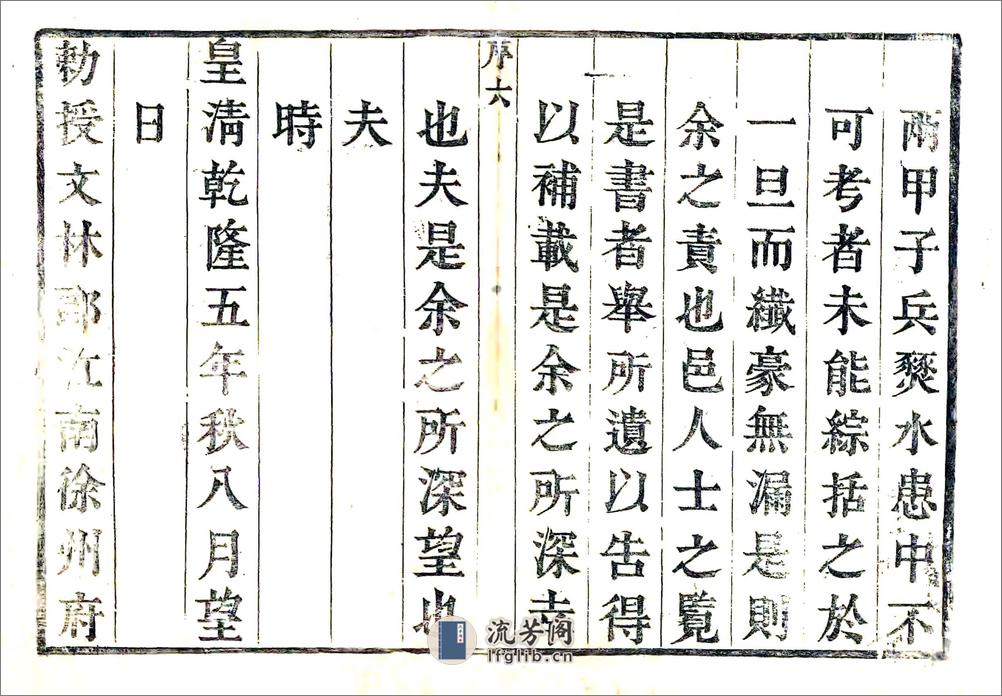 兩甲子兵燹水患中不
可考者未能綜括之於
一旦而纖豪無漏是則
余之責也邑人士之覧
是書者舉所遺以告得
以補載是余之所深幸
序六
也夫是余之所深望也
夫
時
皇清乾隆五年秋八月望
日
勅授文林郎江南徐州府
流芳阁
lfglib.cn